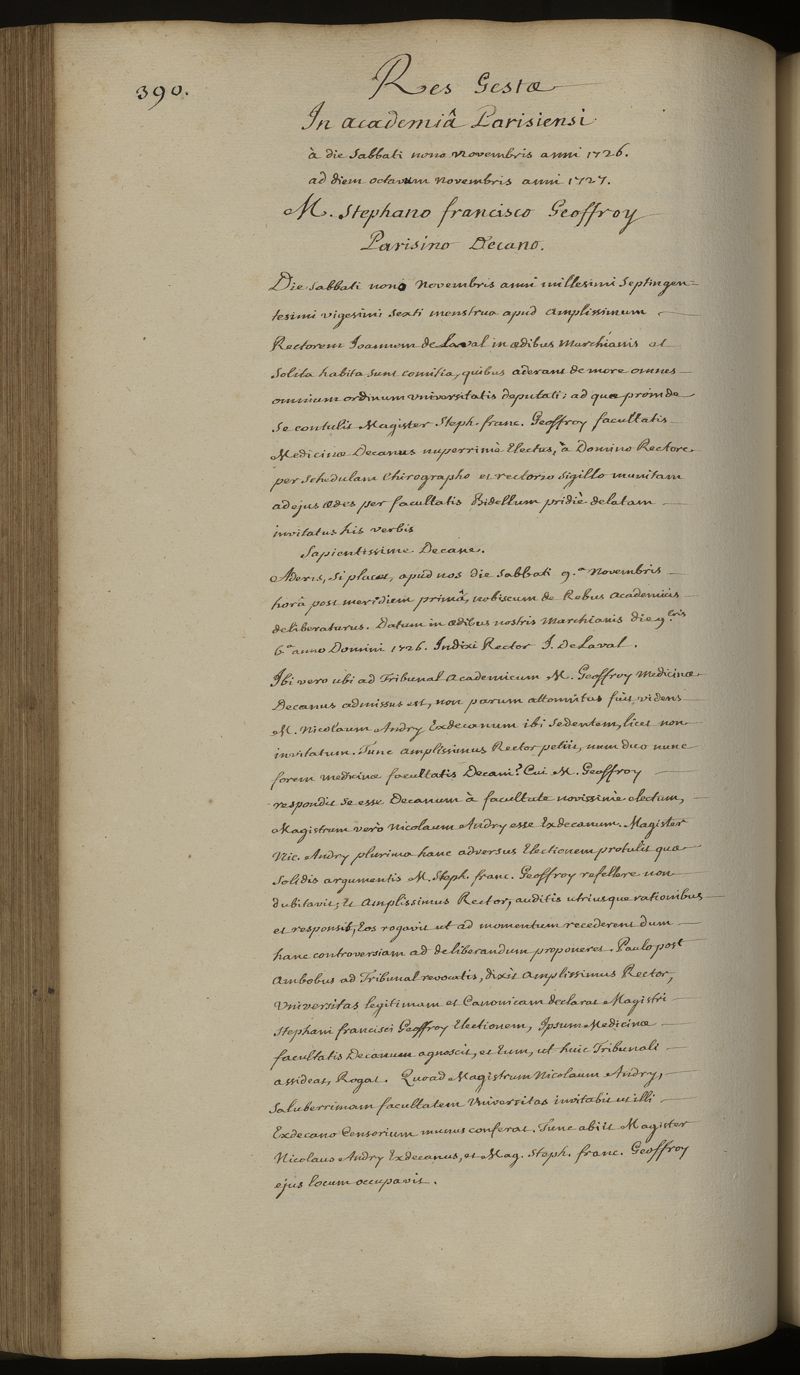 390.
Res Gestæ
In academiâ Parisiensi
à die Sabbati nono Novembris anni 1726.
ad diem octavum Novembris anni 1727.
M. Stephano francisco Geoffroy
Parisino Decano.
Die Sabbati nono Novembris anni millesimi Septingen=
tesimi vigesimi Sexti menstrua apud Amplissimum
Rectorem Joannem de Laval in ædibus Marchianis ut
Solita habita sunt comitia, quibus aderant de more omnes
omnium ordinum universitatis deputati; ad quæ proinde
Se contulit Magister Steph. franc. Geoffroy facultatis
Medicinæ Decanus nuperrimè Electus, à Domino Rectore
per Schedulam Chirographo et rectorio Sigillo munitam
ad ejus ædes per facultatis Bidellum pridiè delatam
invitatus his verbis
Sapientissime Decane.
Aderis, Si placet, apud nos die Sabbati 9.a Novembris
horâ post meridiem primâ, nobiscum de Rebus Academicis
deliberaturus. Datum in ædibus nostris Marchianis die 9.bris
6.a anno Domini 1726. Indixi Rector J. De Laval.
Ibi vero ubi ad Tribunal Academicum M. Geoffroy Medicinæ
Decanus admissus est, non parum attonitus fuit videns
M. Nicolaum Andry Exdecanum ibi Sedentem, licet non
invitatum. Tunc Amplissimus Rector petiit, num duo nunc
forent medicinæ facultatis Decani? Cui M. Geoffroy
respondit Se esse Decanum à facultate novissimè electum,
Magistrum verò Nicolaum Andry esse Exdecanum. Magister
Nic. Andry plurima hanc adversus Electionem protulit quæ
Solidis argumentis M. Steph. franc. Geoffroy refellere non
dubitavit; Et Amplissimus Rector, auditis utriusque rationibus
et responsis, Eos rogavit ut ad momentum recederent dum
hanc controversiam ad deliberandum proponeret. Paulo post
Ambobus ad Tribunal revocatis, dixit Amplissimus Rector,
Universitas legitimam et Canonicam declarat Magistri
Stephani francisci Geoffroy Electionem, Ipsum Medicinæ
facultatis Decanum agnoscit, et Eum, ut huic Tribunali
assideat, Rogat. Quoad Magistrum Nicolaum Andry,
Saluberrimam facultatem Universitas invitabit ut illi
Exdecano Censorium munus conferat. Tunc abiit Magister
Nicolaus Andry Exdecanus, et Mag. Steph. franc. Geoffroy
ejus locum occupavit.